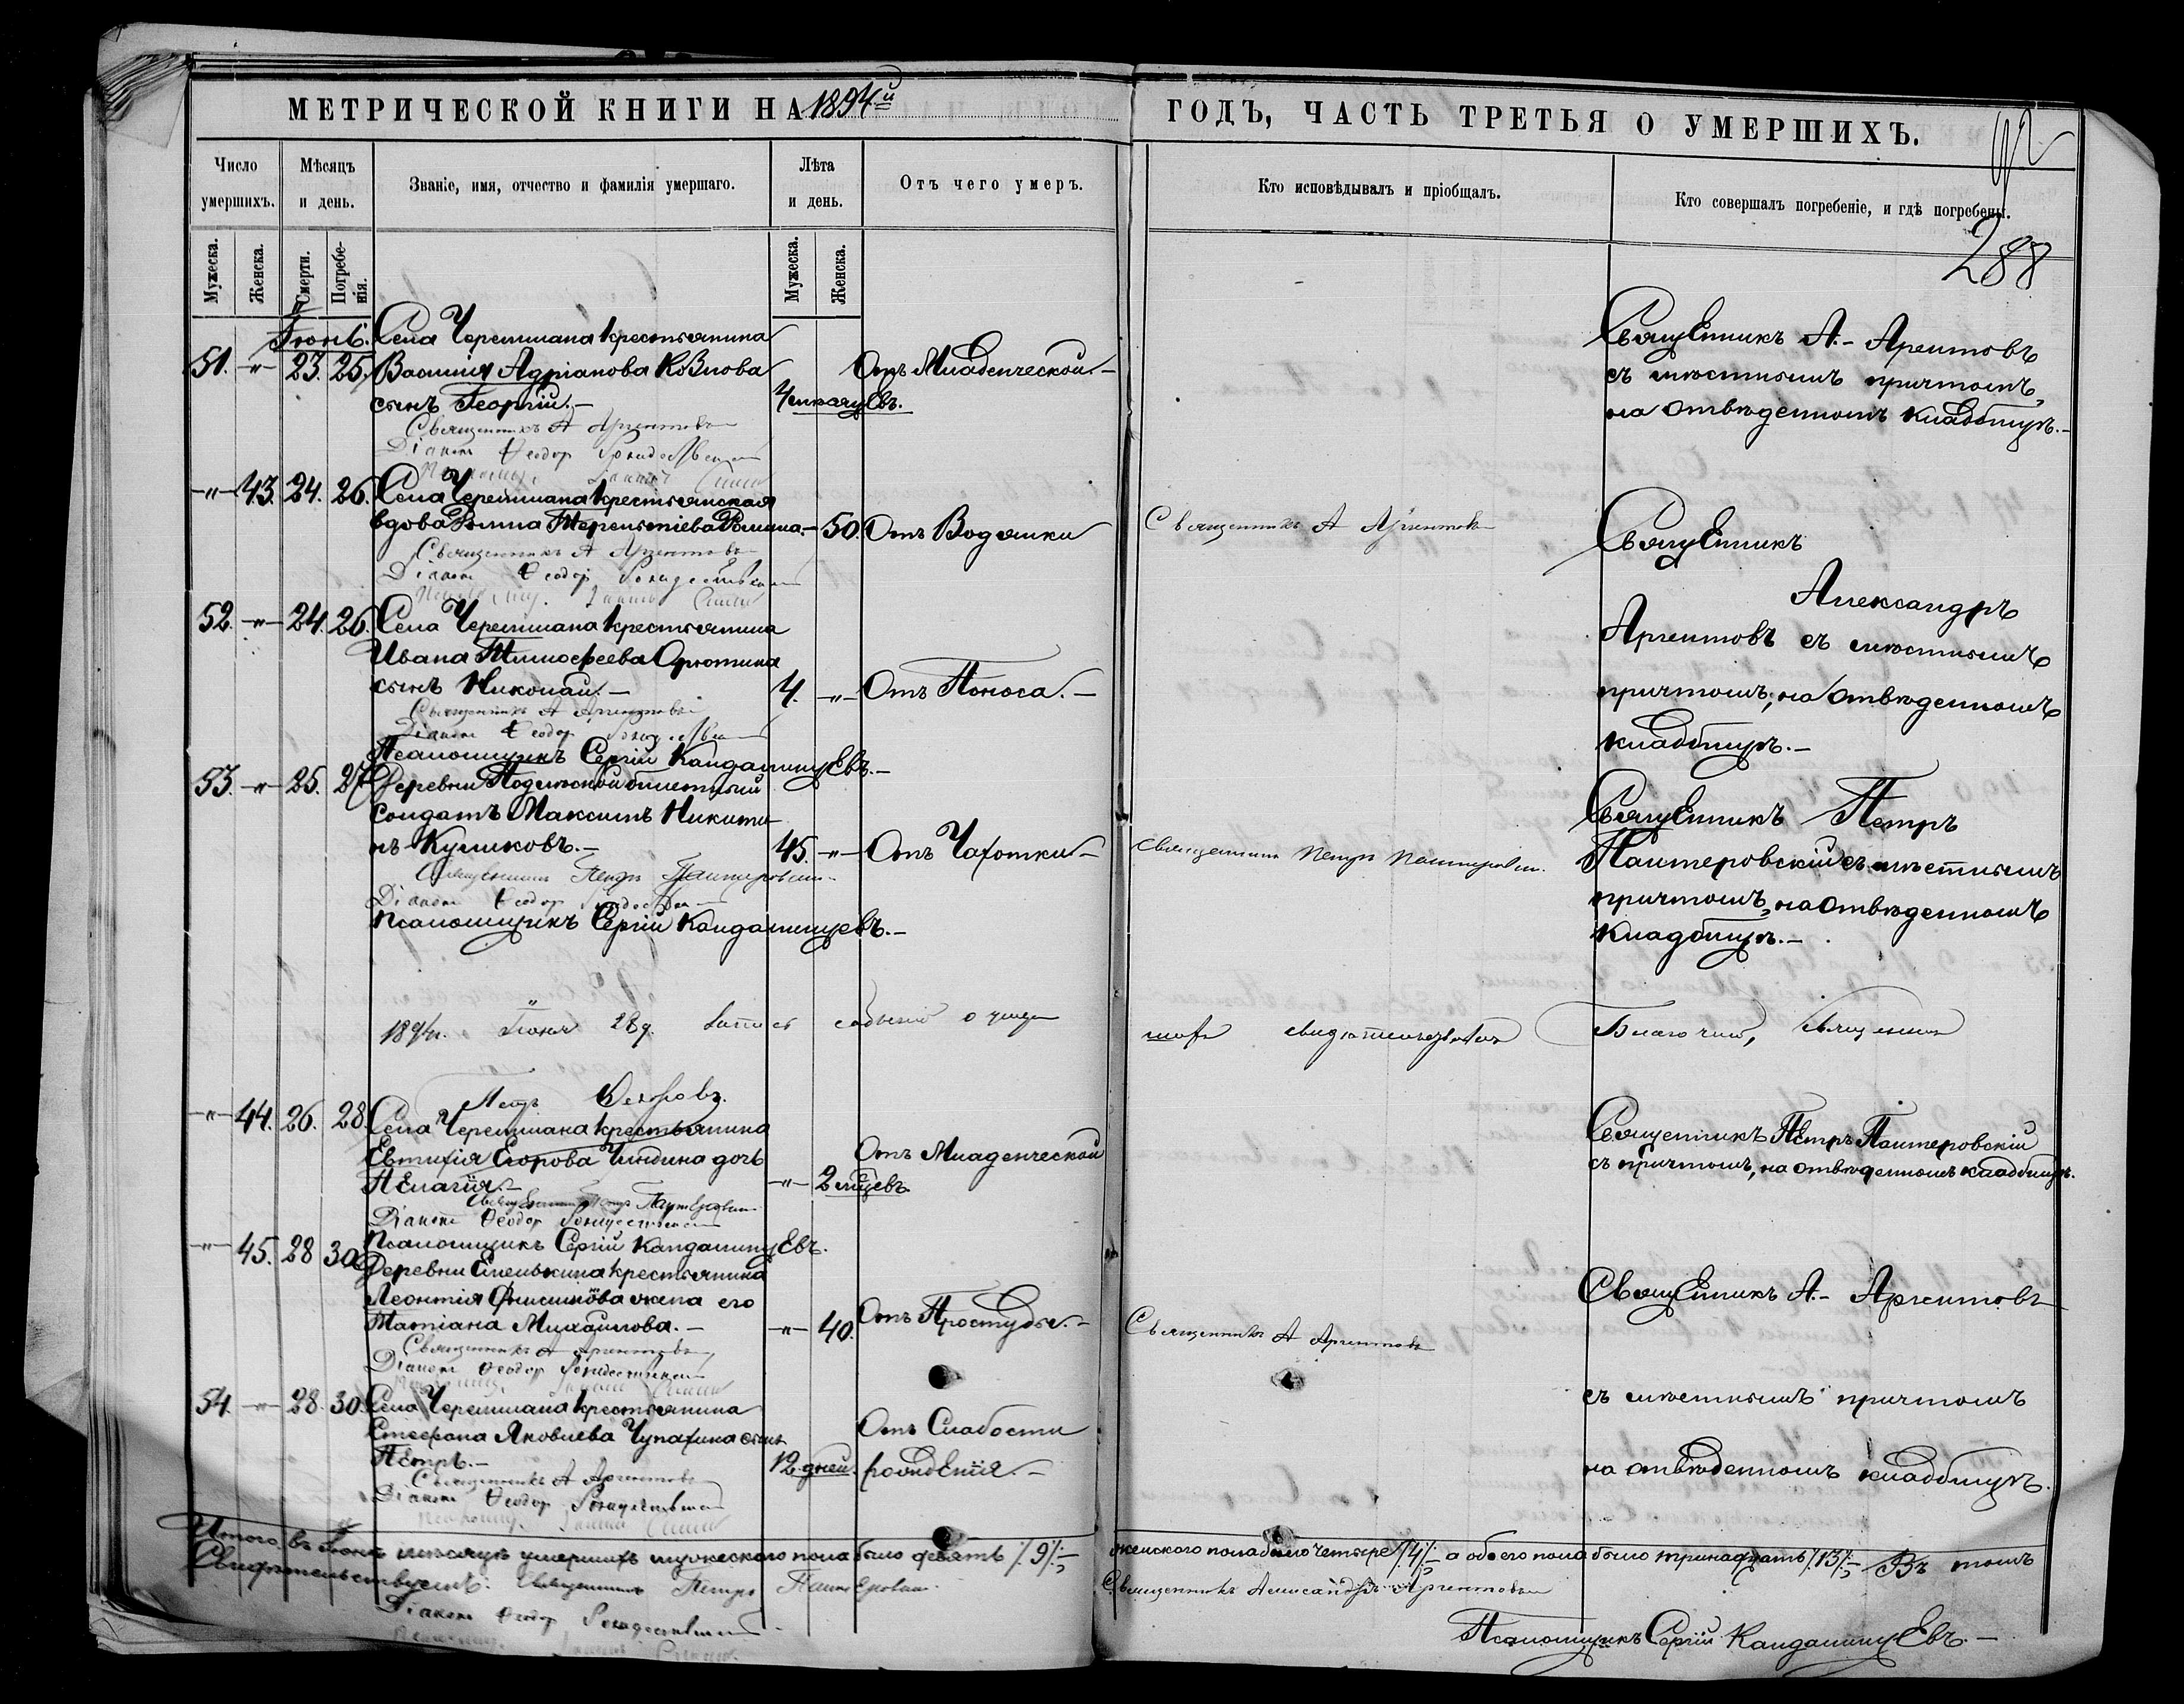 МЕТРИЧЕСКОЙ КНИГИ НА 1894й ГОДЪ, ЧАСТЬ ТРЕТЬЯ О УМЕРШИХЪ.
288
Число умершихъ.
Мѣсяцъ и день.
Званіе, имя, отчество и фамилія умершаго.
Лѣта и день.
Отъ чего умеръ.
Кто исповѣдывалъ и пріобщалъ.
Кто совершалъ погребеніе, и гдѣ погребены.
Мужеска.
Женска.
Смерти.
Погребенія.
Мужеска.
Женска.
Іюнь.
Села Черемшана крестьянина
51. -„- 23. 25. Василія Адріанова Козлова
сынъ Георгій.-
4 мѣсяцевъ.
Отъ Младенческой.-
Священникъ А.- Аргентовъ
съ мѣстнымъ причтомъ,
на отведенномъ кладбищѣ.-
Священникъ А Аргентовъ
Діаконъ Ѳеодор Рождественскій
-„- 43. 24. 26. Села Черемшана крестьянская
вдова Терентіева -„- 50. Отъ Водянки
Священникъ А Аргентовъ
Священникъ
Александръ
Аргентовъ съ мѣстнымъ
причтомъ, на отведенномъ
кладбищѣ.-
Священникъ А Аргентовъ
Діаконъ Ѳеодор Рождественскій
52. -„- 24. 26. Села Черемшана крестьянина
Ивана Тимофеева
сынъ Николай.- 4. -„- Отъ Поноса.-
Священникъ А Аргентовъ
Діаконъ Ѳеодор Рождественскій
Псаломщикъ Сергій Кандалинцевъ.-
53. -„- 25. 27. Деревни билетный
солдатъ Максимъ Никитинъ
Куликовъ.- 45. -„- Отъ Чахотки.-
Священникъ Петръ Пантеровскій.
Священникъ Петръ
Пантеровскій съ мѣстнымъ
причтомъ, на отведенномъ
кладбищѣ.-
Священникъ Петръ Пантеровскій.
Діаконъ Ѳеодор Рождественскій
Псаломщикъ Сергій Кандалинцевъ.-
1894г. Іюня 28 д. Запись событій о умершихъ свидѣтельствовалъ Благочин, священникъ
Петръ
-„- 44. 26. 28. Села Черемшана крестьянина
Евтихія Егорова дочь
Пелагія.- -„- 2 мѣсяцевъ.
Отъ Младенческой
Священникъ Петръ Пантеровскій
съ причтомъ, на отведенномъ кладбищѣ.
Священникъ Петръ Пантеровскій
Діаконъ Ѳеодор Рождественскій
Псаломщикъ Сергій Кандалинцевъ.
-„- 45. 28 30. Деревни крестьянина
Леонтія Онисимова жена его
Татіана Михайлова.- -„- 40. Отъ Простуды.-
Священникъ А Аргентовъ
Священникъ А.- Аргентовъ
съ мѣстнымъ причтомъ
на отведенномъ кладбищѣ.
Священникъ А Аргентовъ
Діаконъ Ѳеодор Рождественскій
54. -„- 28. 30. Села Черемшана крестьянина
Стефана Яковлева Чупахина сынъ
Петръ.- 12 дней. Отъ Слабости рожденія.-
Священникъ А Аргентовъ
Діаконъ Ѳеодор Рождественскій
Итого въ Іюнѣ мѣсяцѣ умершихъ мужескаго пола было девять /.9/.- женскаго пола было четыре /.4/.- а обоего пола было тринадцать /.13/.- Въ томъ
Свидѣтельствуемъ: Священникъ Петръ Пантеровскій.
Священникъ Александръ Аргентовъ
Діаконъ Ѳеодор Рождественскій
Псаломщикъ Сергій Кандалинцевъ.-